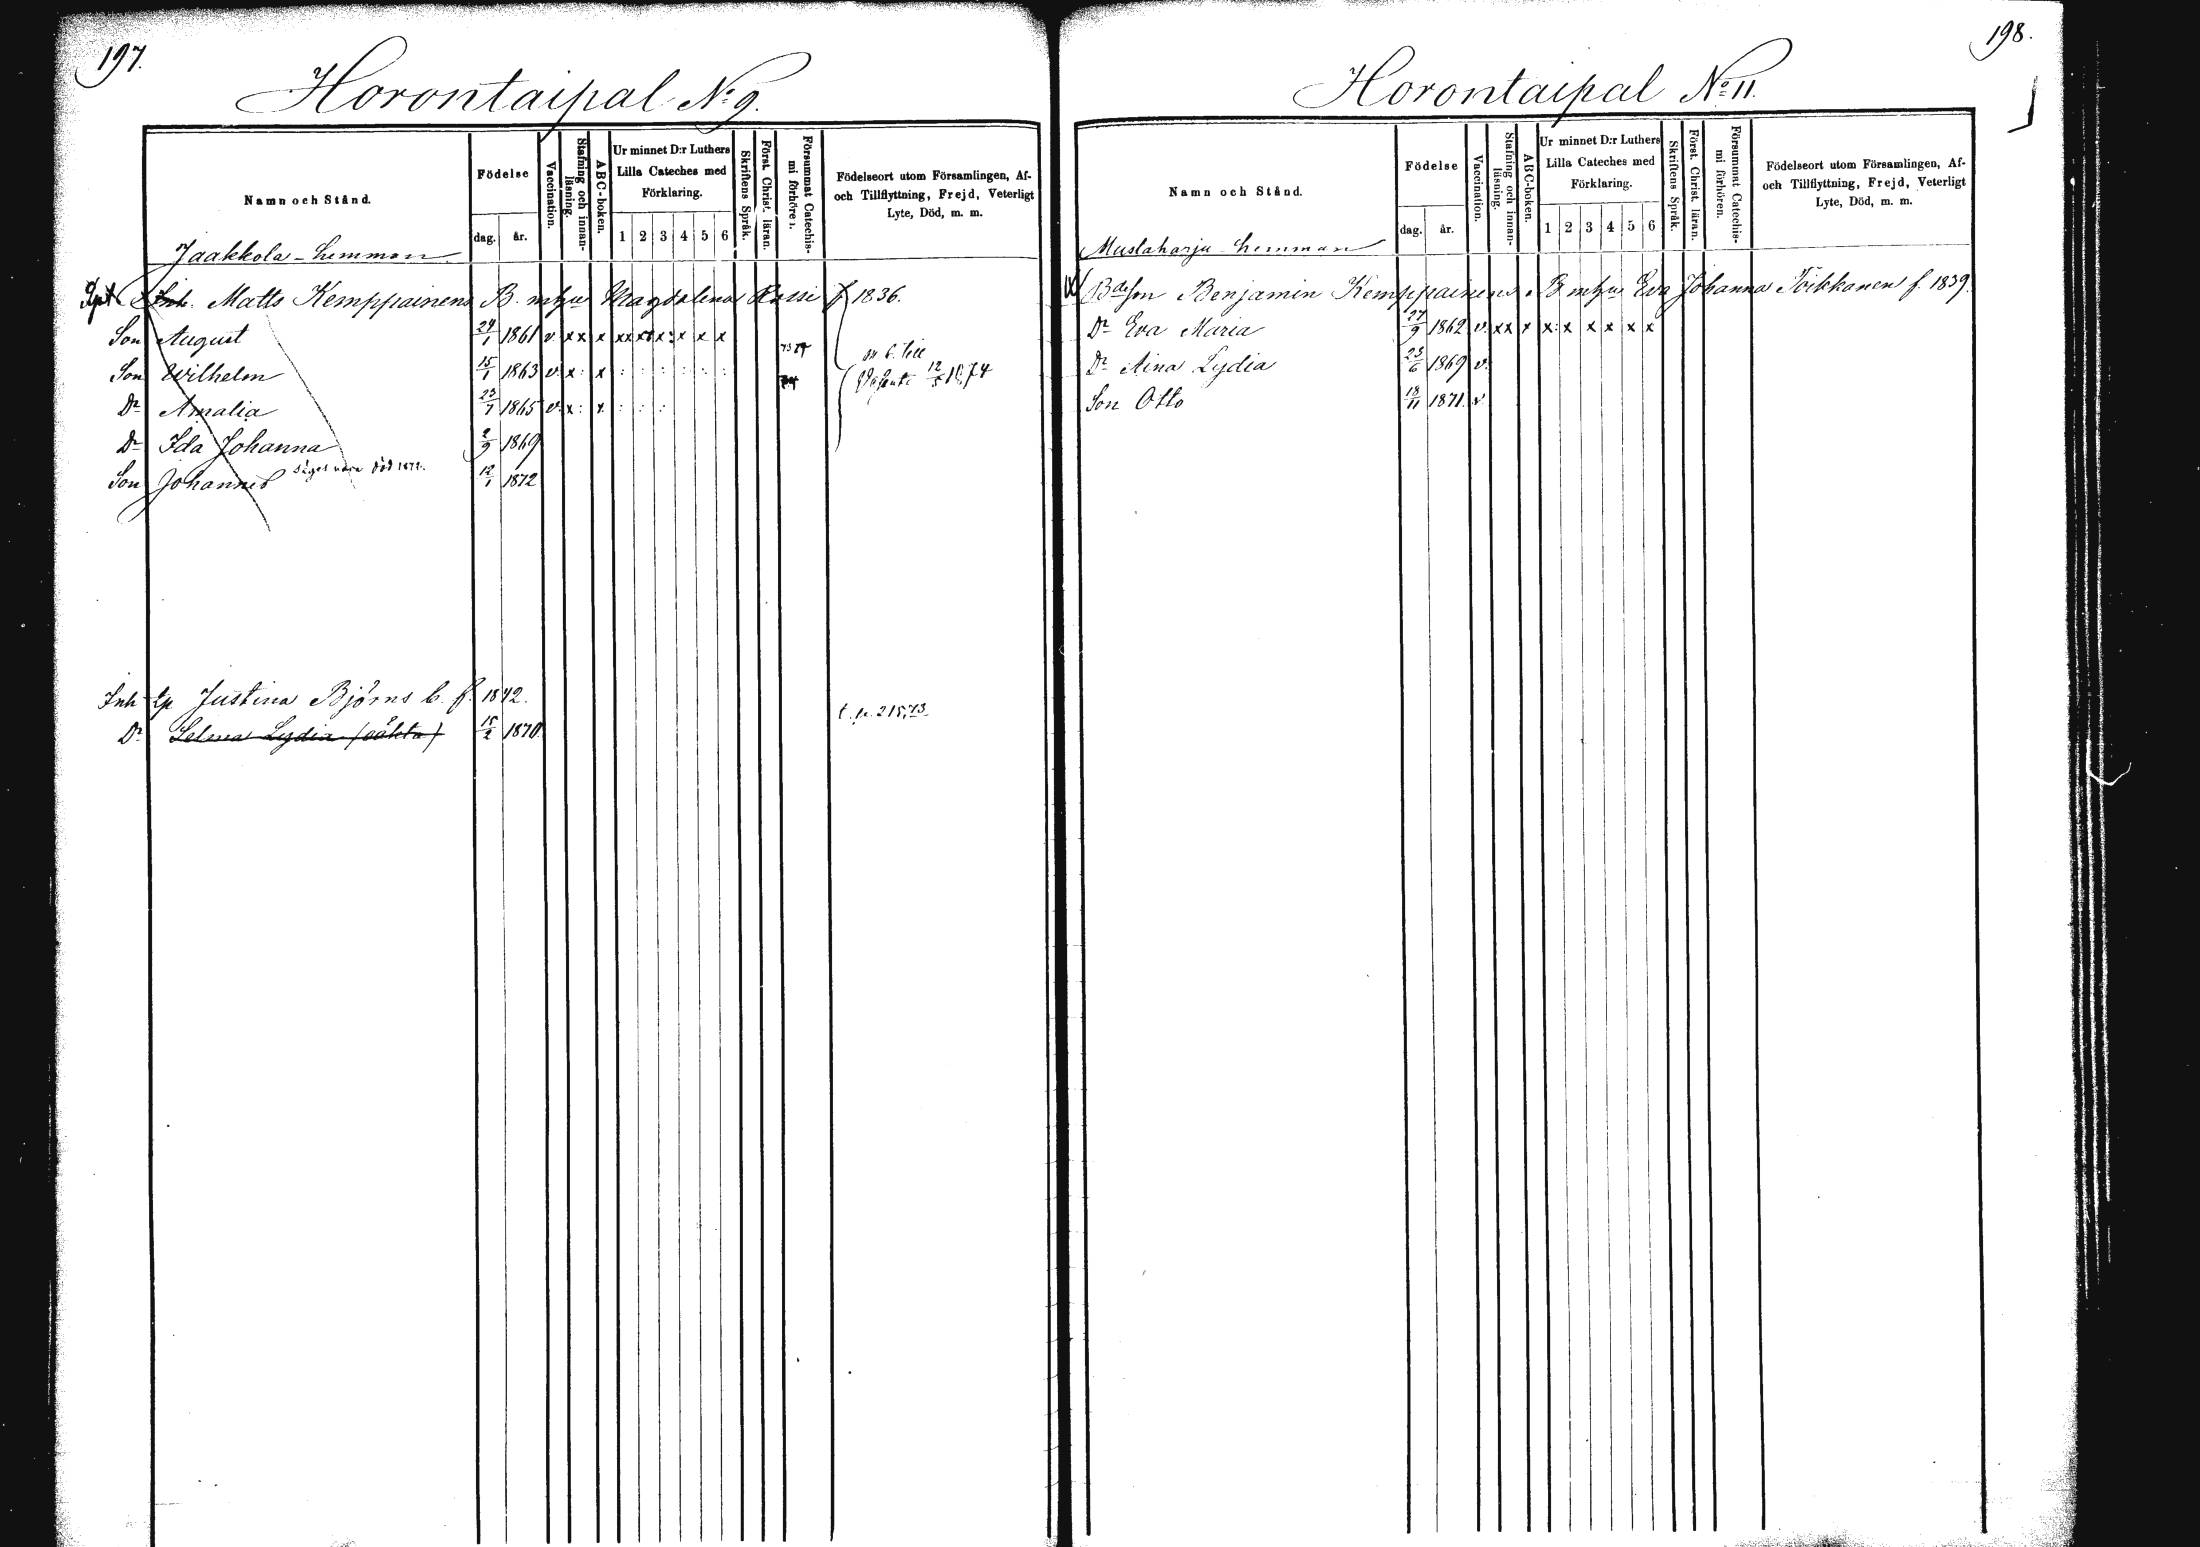 197.
Horontaipal No 9.
Namn och Stånd.
Födelse
dag. år.
Vaccination.
Stafning och innanläsning.
ABC-boken.
Ur minnet D:r Luthers Lilla Cateches med Förklaring.
1 2 3 4 5 6
Skriftens Språk.
Först. Christ. läran.
Försummat Catechismi förhören.
Födelseort utom Församlingen, Af- och Tillflyttning, Frejd, Veterligt Lyte, Död, m. m.
Jaakkola - hemman
Inh. Matts Kemppainens B. m hu Magdalena Rossi f 1836.
Son August 24/1 1861 v. x x x xx x x x x x
Son Wilhelm 15/1 1863 v. x : x : : : : : : 12/5 1874
Dr Amalia 23/7 1865 v. x : x : : :
Dr Ida Johanna 2/9 1869
Son Johannes säges vara död 1872. 12/1 1872
Inh Justina Björns b. f. 1842.
Dr Selma Lydia (oäkta) 15/2 1870 t. p. 215, 73
198.
Horontaipal No 11.
Namn och Stånd.
Födelse
dag. år.
Vaccination.
Stafning och innanläsning.
ABC-boken.
Ur minnet D:r Luthers Lilla Cateches med Förklaring.
1 2 3 4 5 6
Skriftens Språk.
Först. Christ. läran.
Försummat Catechismi förhören.
Födelseort utom Församlingen, Af- och Tillflyttning, Frejd, Veterligt Lyte, Död, m. m.
Mustaharju - hemman
Bdeson Benjamin Kemppainens B m hu Eva Johanna Toikkanen f. 1839.
Dr Eva Maria 27/9 1862 v. x x x x : x x x x x
Dr Aina Lydia 23/6 1869 v.
Son Otto 18/11 1871. v